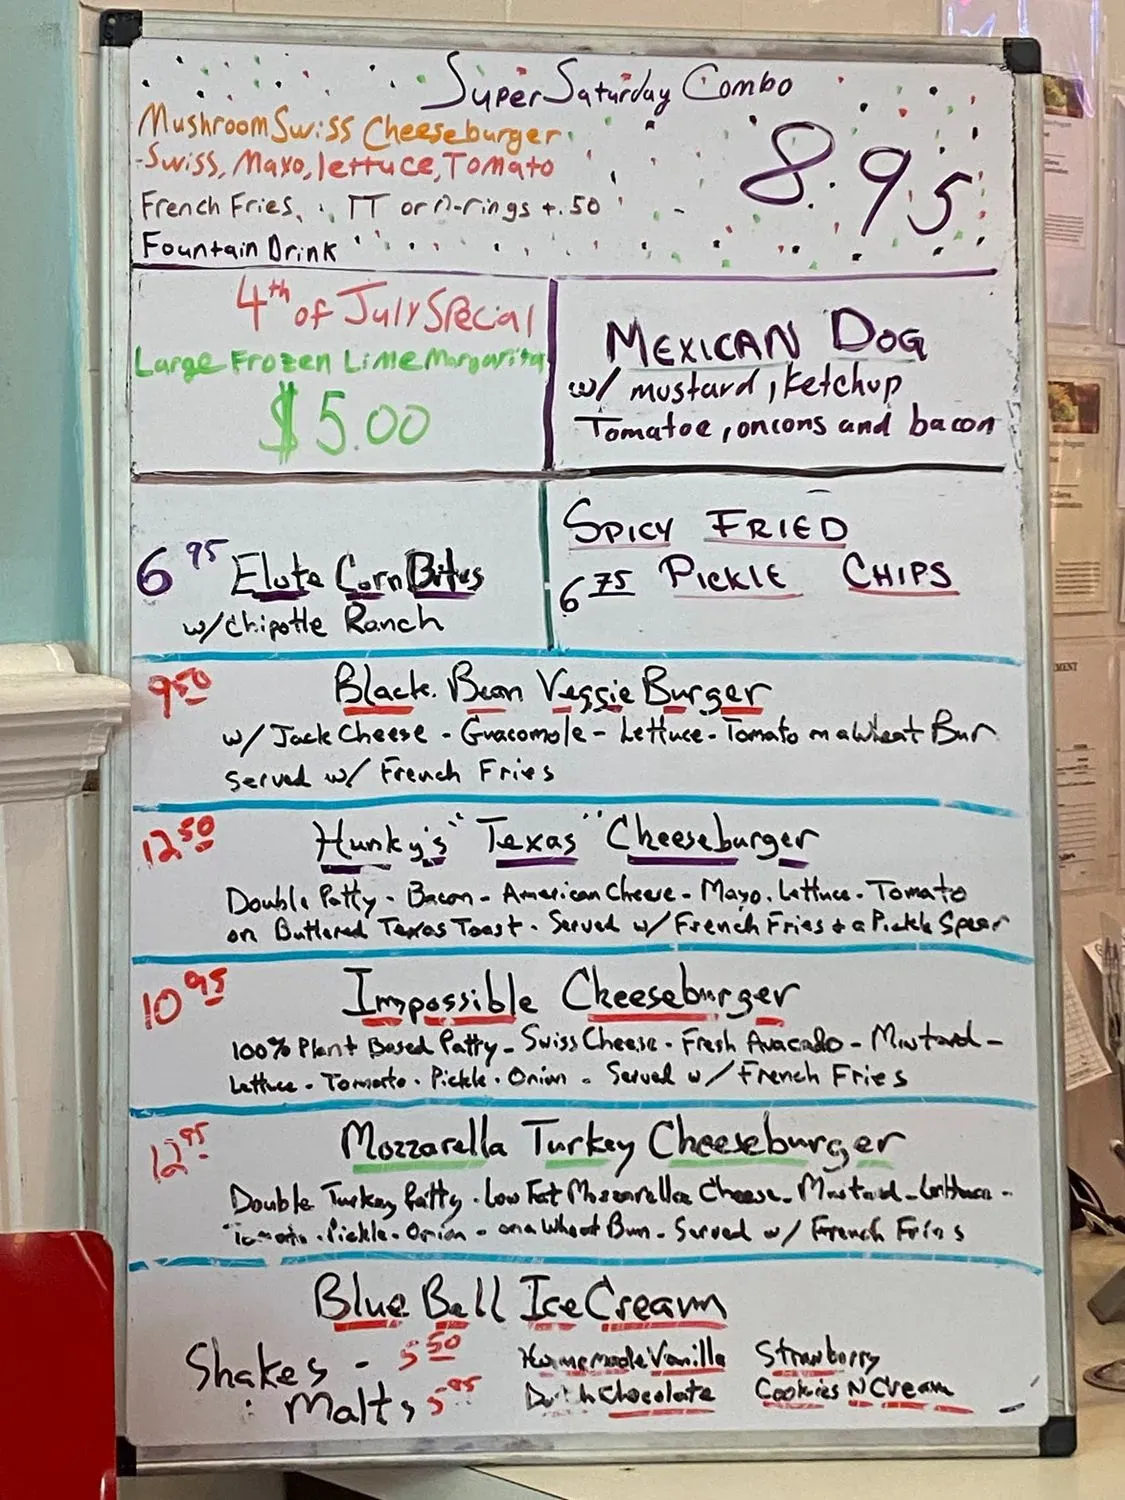 Super Saturday Combo
Mushroom Swiss Cheeseburger
-Swiss, Mayo, lettuce, Tomato
8.95
French Fries, TT or O-rings +.50
Fountain Drink
4th of July Special
Large Frozen Lime Margarita
$5.00
MEXICAN DOG
w/ mustard, ketchup
Tomatoe, onions and bacon
6 95 Elote Corn Bites
w/ Chipotle Ranch
SPICY FRIED
6 75 PICKLE CHIPS
9 50 Black Bean Veggie Burger
w/ Jack Cheese - Guacomole - Lettuce - Tomato on a Wheat Bun
Served w/ French Fries
12 50 Hunky's "Texas" Cheeseburger
Double Patty - Bacon - American Cheese - Mayo. Lettuce - Tomato
on Buttered Texas Toast - Served w/ French Fries + a Pickle Spear
10 95 Impossible Cheeseburger
100% Plant Based Patty - Swiss Cheese - Fresh Avacado - Mustard -
Lettuce - Tomato - Pickle - Onion - Served w/ French Fries
12 95 Mozzarella Turkey Cheeseburger
Double Turkey Patty - Low Fat Mozzarella Cheese - Mustard - Lettuce -
Tomato - Pickle - Onion - on a Wheat Bun - Served w/ French Fries
Blue Bell Ice Cream
Shakes - 5 50
Malts 5 95
Homemade Vanilla
Strawberry
Dutch Chocolate
Cookies N Cream